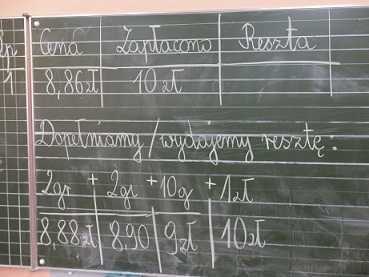 Lp Cena Zapłacono Reszta
1 8,86 zł 10 zł
Dopełniamy/wydajemy resztę:
2gr + 2gr + 10g + 1zł
8,88zł 8,90 9zł 10zł